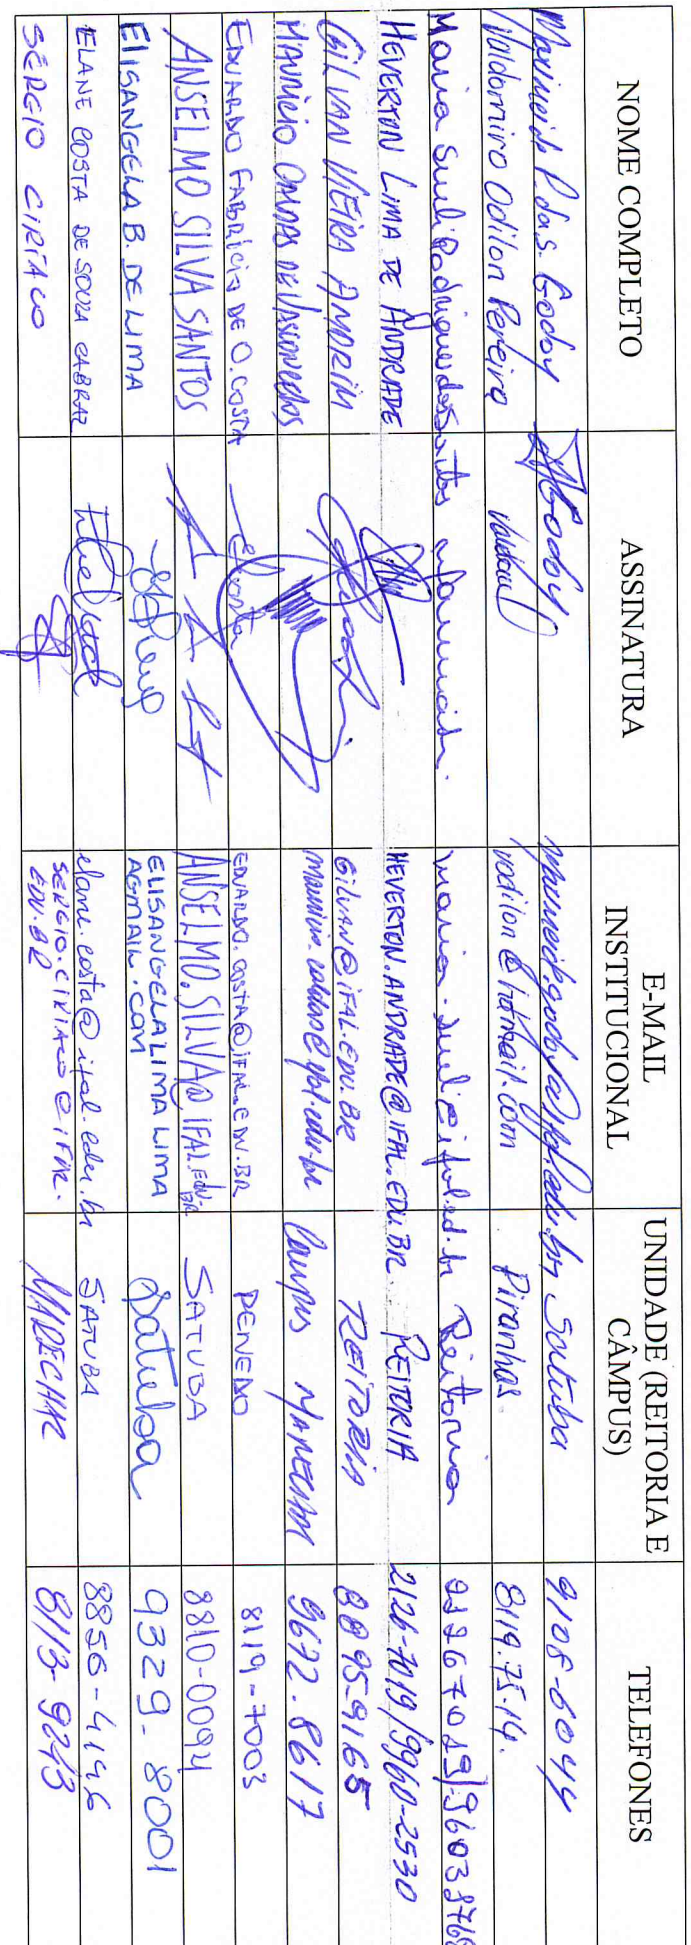 NOME COMPLETO
ASSINATURA
E-MAIL
INSTITUCIONAL
UNIDADE (REITORIA E
CÂMPUS)
TELEFONES
P. da S. Godoy
Godoy
Satuba
9108-6044
Valdomiro Odilon Pereira
vodilon@hotmail.com
Piranhas
8119.75.14.
Maria Sueli Rodrigues dos Santos
Reitoria
HEVERTON LIMA DE ANDRADE
HEVERTON.ANDRADE@IFAL.EDU.BR
REITORIA
2126-7019/9960-2530
GILVAN VIEIRA AMORIM
Gilvan@IFAL.EDU.BR
REITORIA
8895-9165
MAURÍCIO DE VASCONCELOS
Campus MARECHAL
9672.8617
EDUARDO FABRÍCIO DE O. COSTA
EDUARDO.COSTA@IFAL.EDU.BR
PENEDO
8119-7003
ANSELMO SILVA SANTOS
ANSELMO.SILVA@IFAL.EDU.BR
SATUBA
8810-0094
ELISANGELA B. DE LIMA
ELISANGELALIMA LIMA
AGMAIL.COM
Satuba
9329-8001
ELANE COSTA DE SOUZA CABRAL
elane.costa@ifal.edu.br
SATUBA
8856-4196
SÉRGIO CIRÍACO
SERGIO.CIRIACO@IFAL.
EDU.BR
MARECHAL
8113-9213